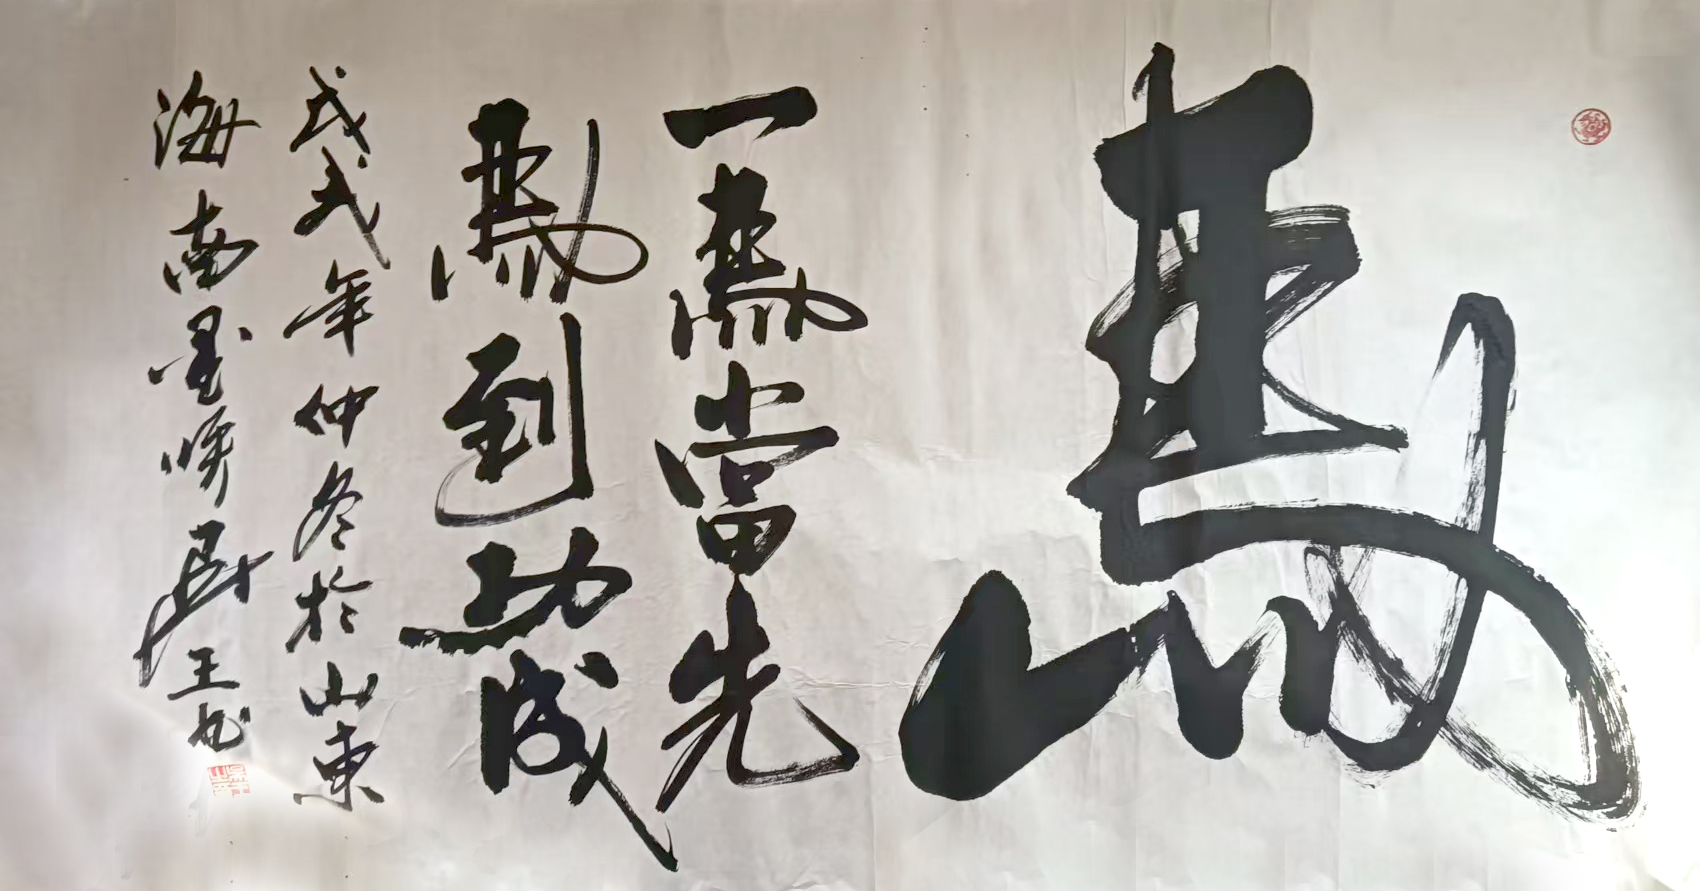 馬
一馬當先
馬到功成
戊戌年仲冬於山東
海南墨 王